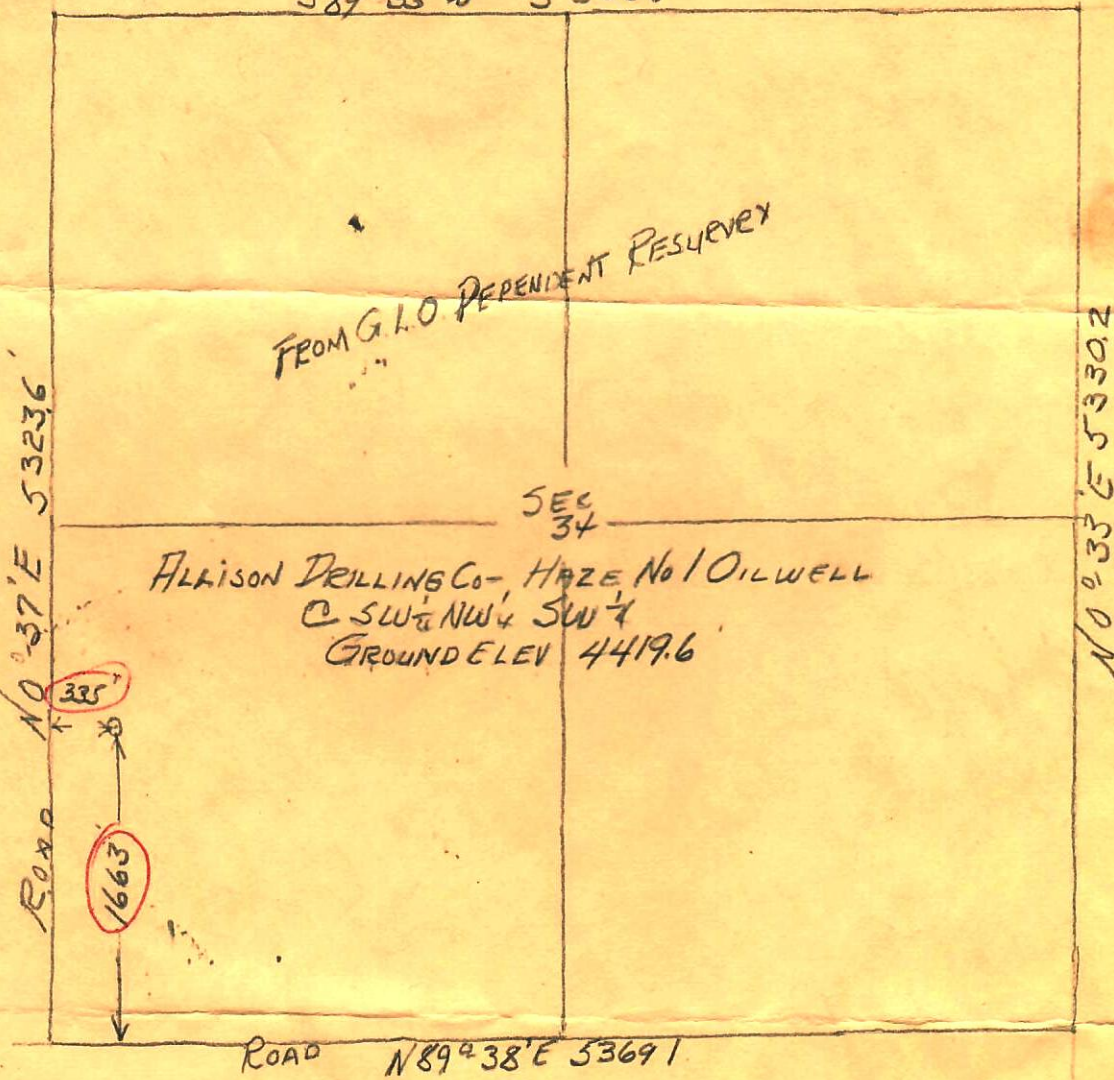 FROM G.L.O. DEPENDENT RESURVEY
N0°37'E 5323.6'
N0°33'E 5330.2
SEC
34
ALLISON DRILLING Co-, HAZE No 1 OILWELL
C SW¼ NW¼ SW¼
GROUND ELEV 4419.6
335'
ROAD
1663
ROAD N89°38'E 5369.1